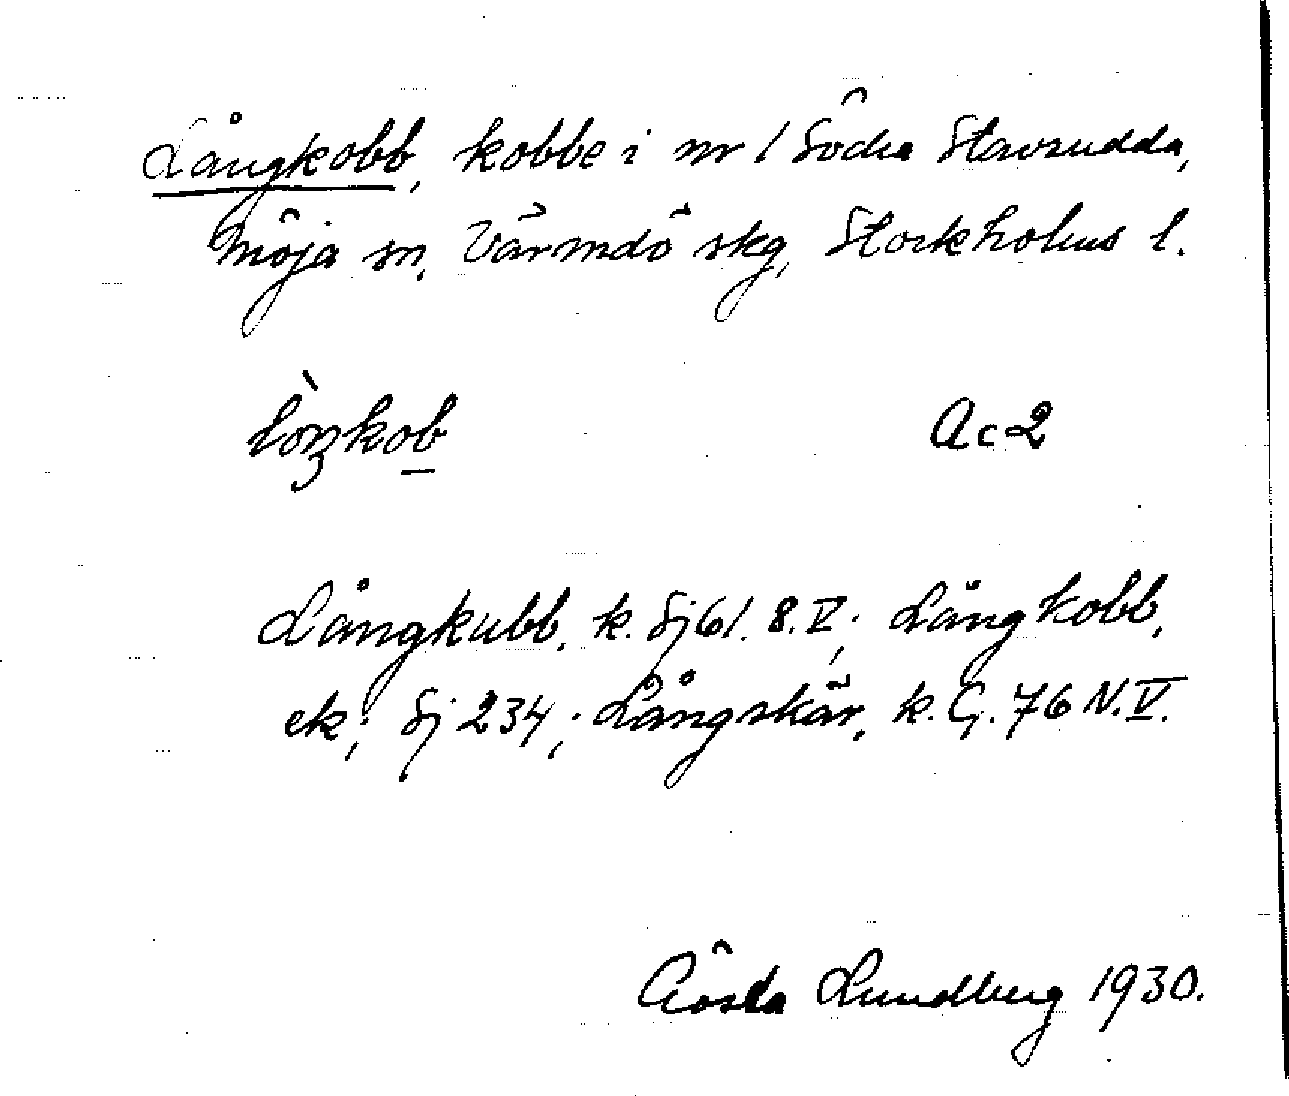 Långkobb, kobbe i nr 1 Södra Stavsudda,
Möja sn, Värmdö skg, Stockholms l.
lòŋkob Ac2
Långkubb, k. Sj61. 8.V; Långkobb,
ek; Sj 234; Långskär, k. G. 76 N.V.
Gösta Lundberg 1930.